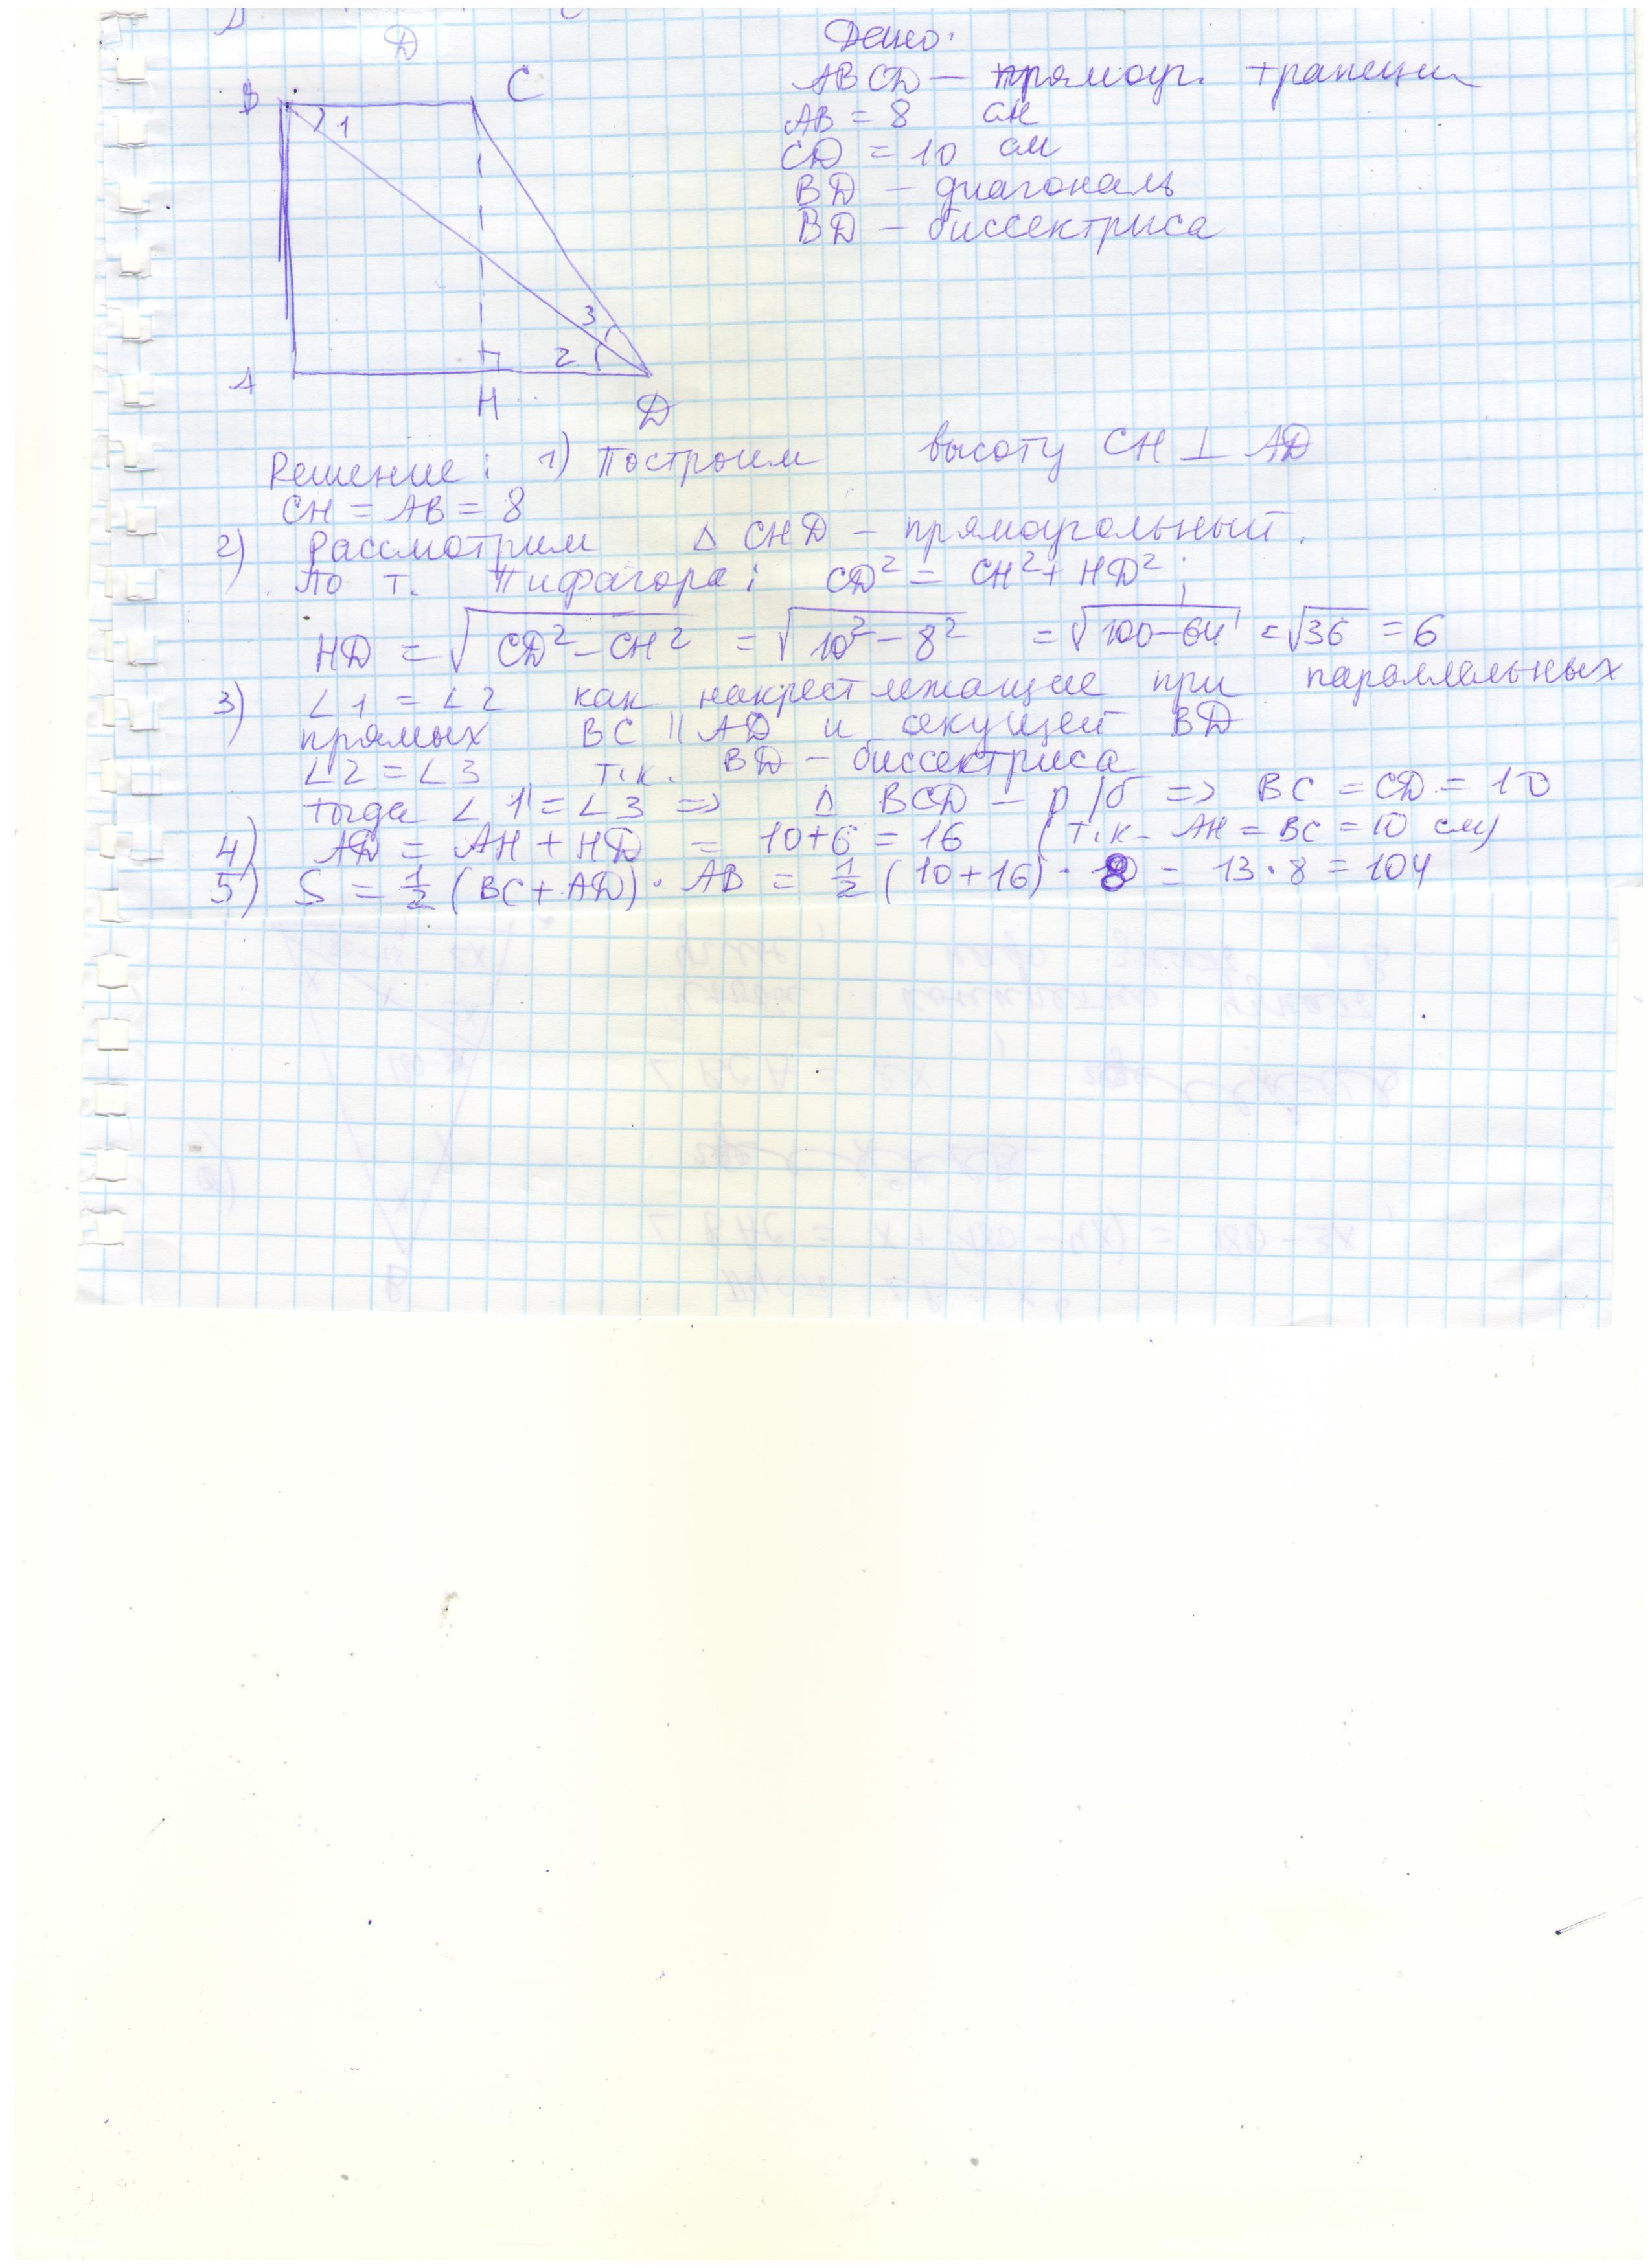 Д
Дано:
ABCD – прямоуг. трапеция
AB = 8 см
CD = 10 см
BD – диагональ
BD – биссектриса
B
1
C
3
2
A
H
D
Решение: 1) Построим высоту CH ⊥ AD
CH = AB = 8
2) Рассмотрим Δ CHD – прямоугольный.
По т. Пифагора: CD² = CH² + HD²;
HD = √(CD² – CH²) = √(10² – 8²) = √(100–64) = √36 = 6
3) ∠1 = ∠2 как накрест лежащие при параллельных
прямых BC || AD и секущей BD
∠2 = ∠3 т.к. BD – биссектриса
тогда ∠1 = ∠3 => Δ BCD – р/б => BC = CD = 10
4) AD = AH + HD = 10+6 = 16 (т.к. AH = BC = 10 см)
5) S = 1/2 (BC + AD) · AB = 1/2 (10+16) · 8 = 13 · 8 = 104